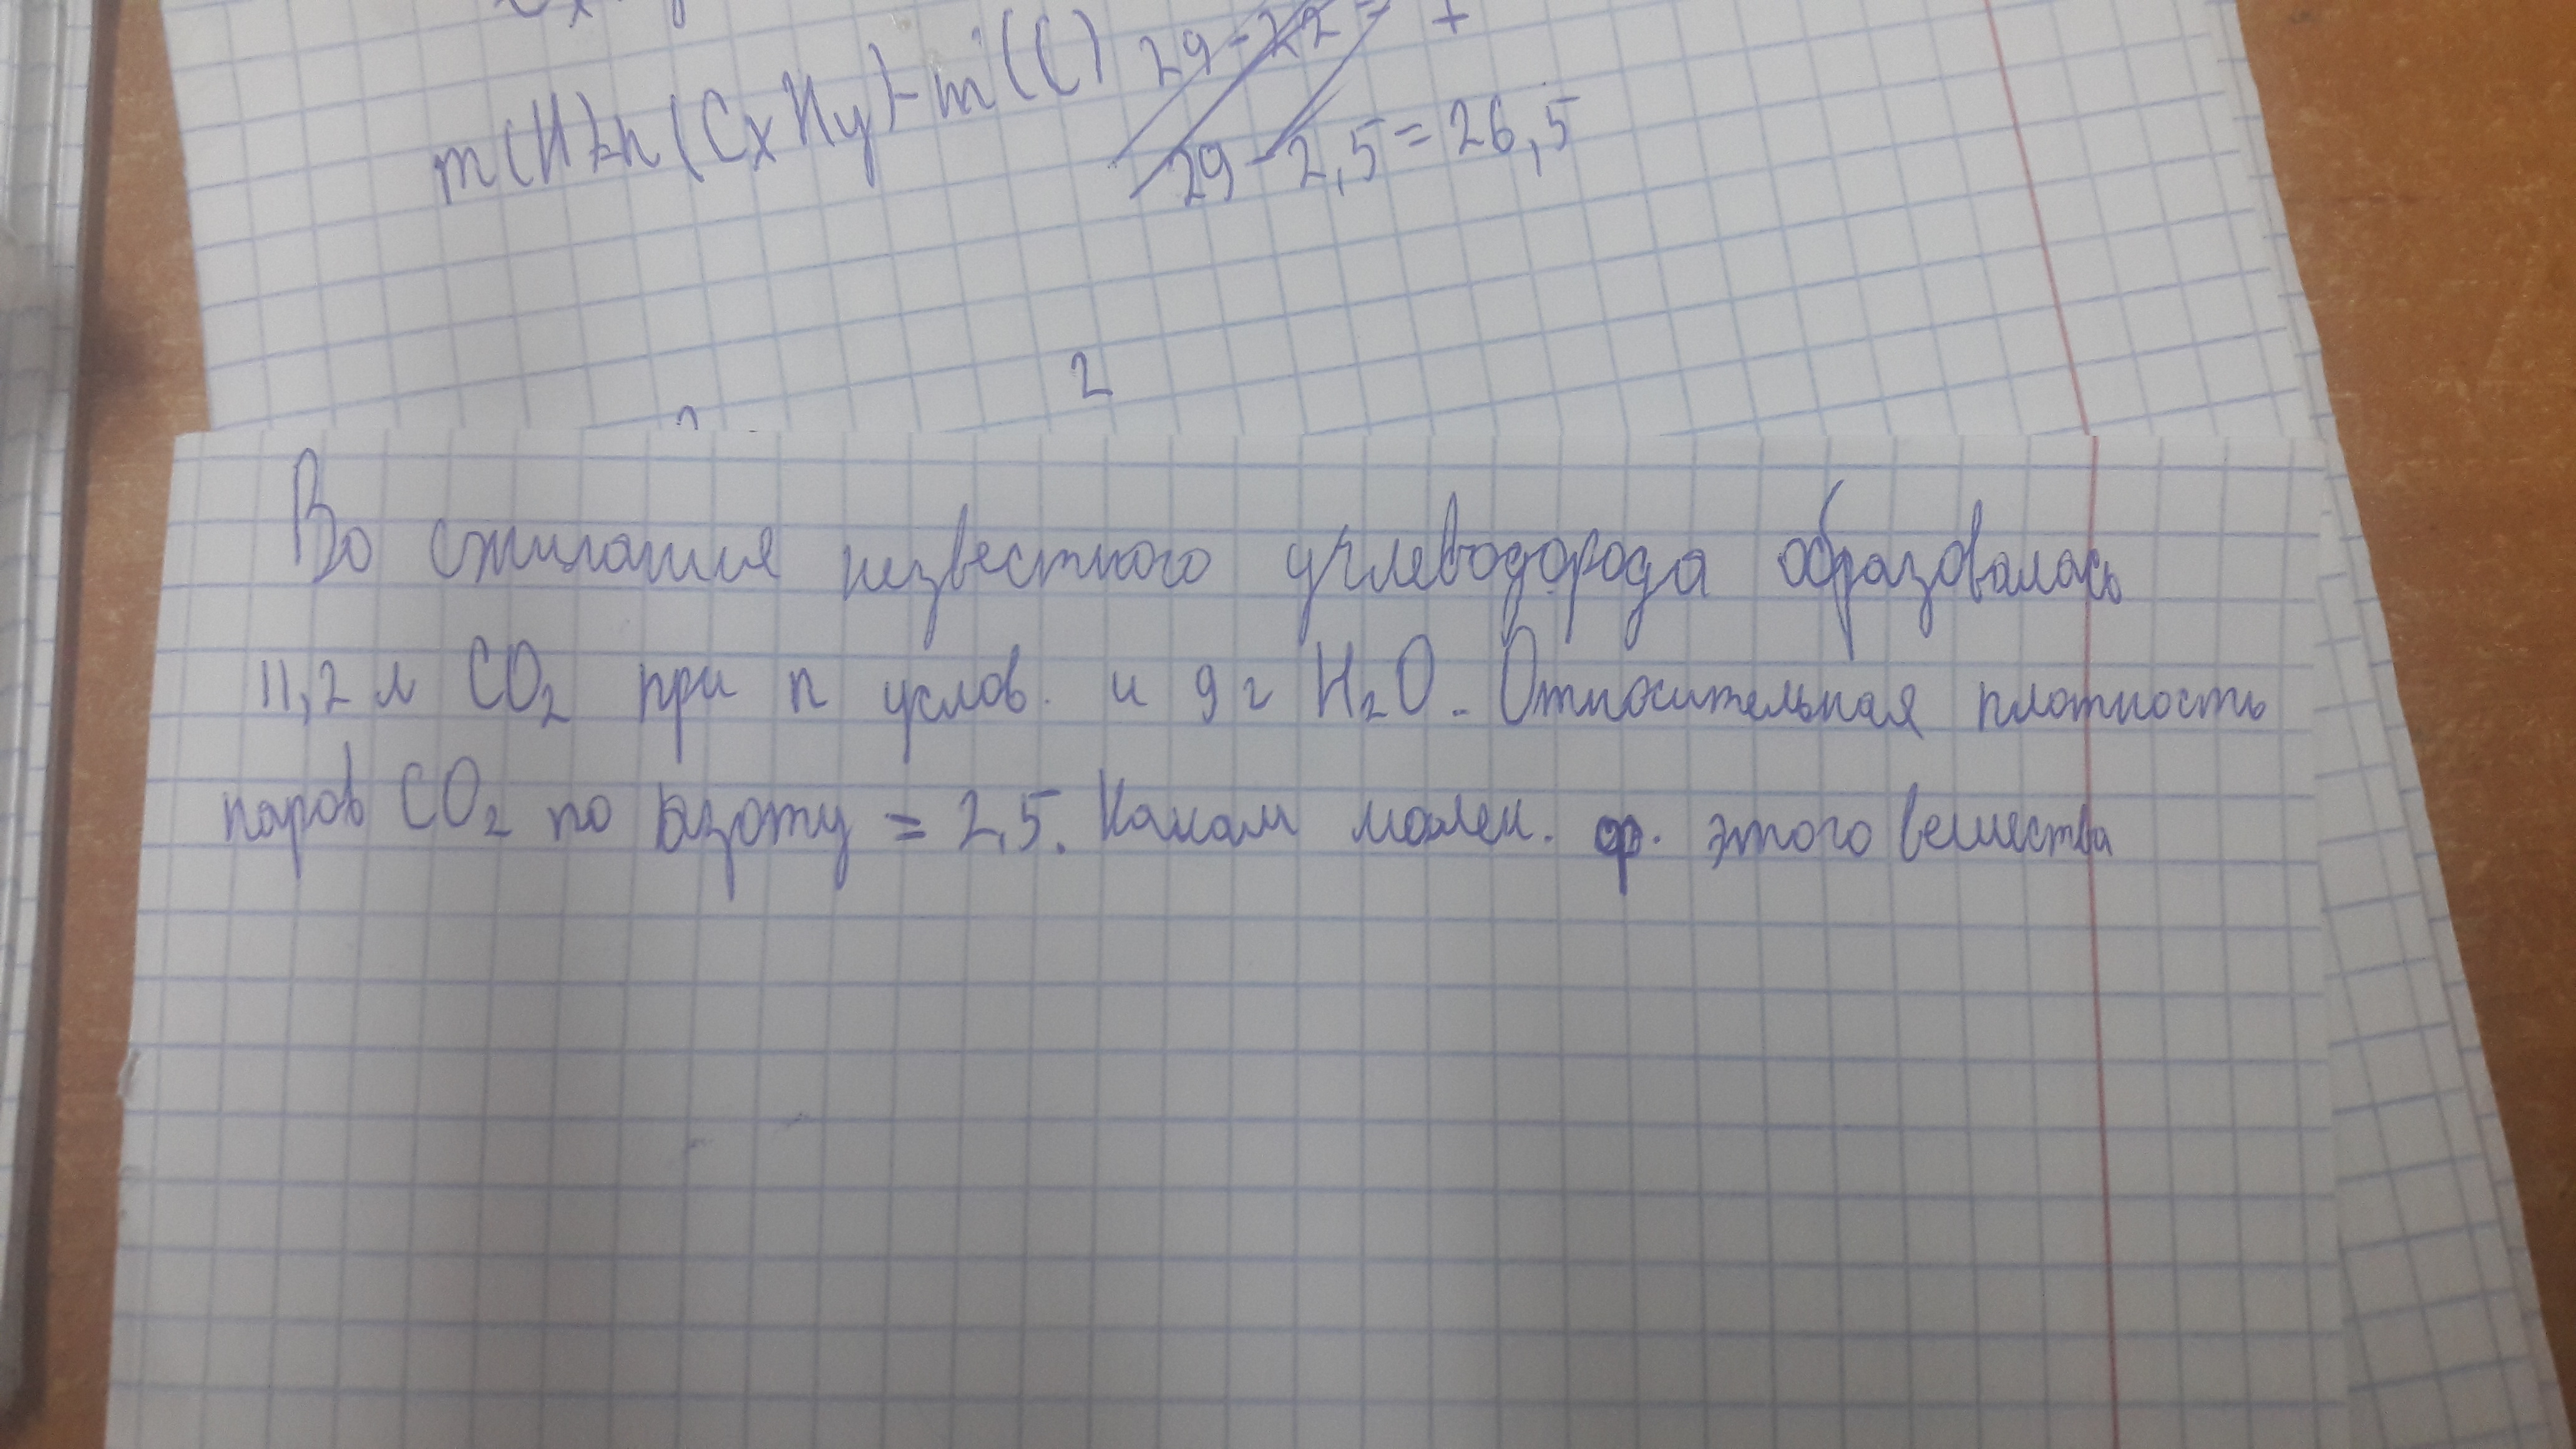 m(H)=m(CxHy)-m(C) 29-22=7
29-2,5=26,5
2
Во сжигания незвестного углеводорода образовалась
11,2 л CO2 при n услов. и 9 г H2O. Относительная плотность
паров CO2 по азоту = 2,5. Какам молек. ф. этого вещества